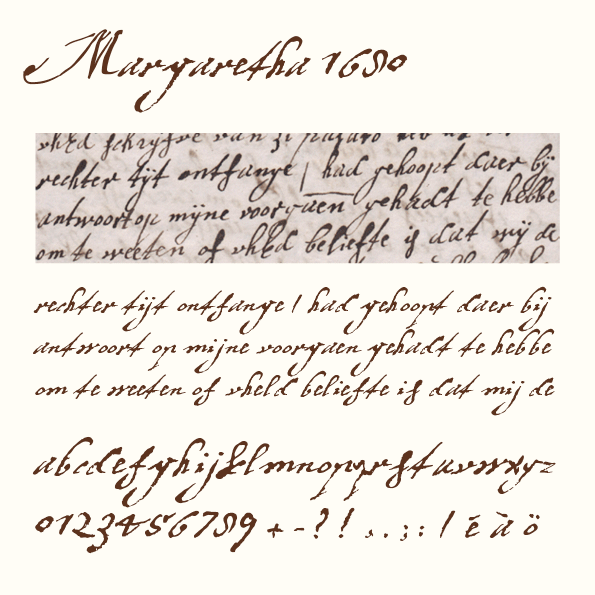 Margaretha 1680
rechter tijt ontfange / had gehoopt daer bij
antwoort op mijne voorgaen gehadt te hebbe
om te weeten of vheld beliefte is dat wij de
rechter tijt ontfange / had gehoopt daer bij
antwoort op mijne voorgaen gehadt te hebbe
om te weeten of vheld beliefte is dat mij de
abcdefghijklmnopqrstuvwxyz
0123456789 + - ? ! , . ; : / é à ö